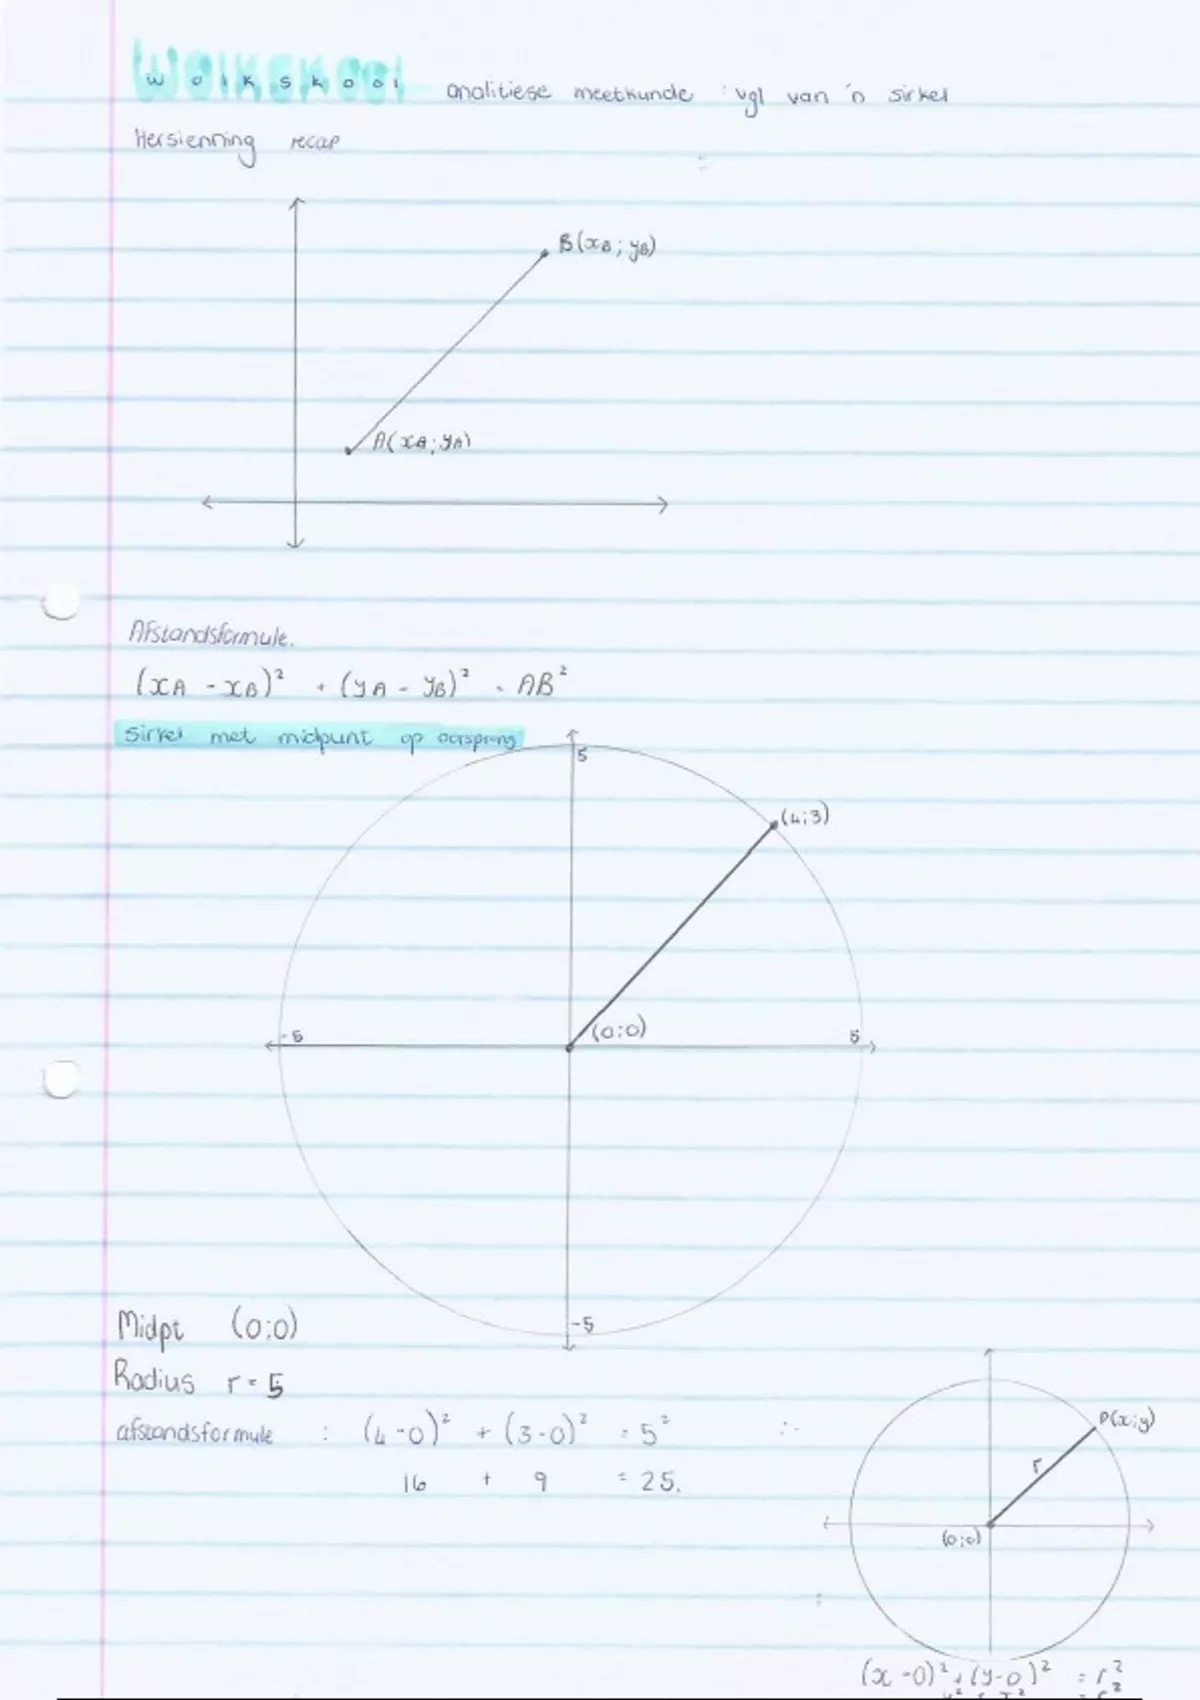 wolkskool analitiese meetkunde : vgl van 'n sirkel
Hersienning recap
B(xB ; yB)
A(xA ; yA)
Afstandsformule.
(xA - xB)² + (yA - yB)² = AB²
Sirkel met midpunt op oorsprong
5
(4;3)
(0;0)
-5
5
-5
Midpt (0;0)
Radius r = 5
afstandsformule : (4-0)² + (3-0)² = 5²
16 + 9 = 25.
∴
P(x;y)
r
(0;0)
(x-0)² + (y-0)² = r²